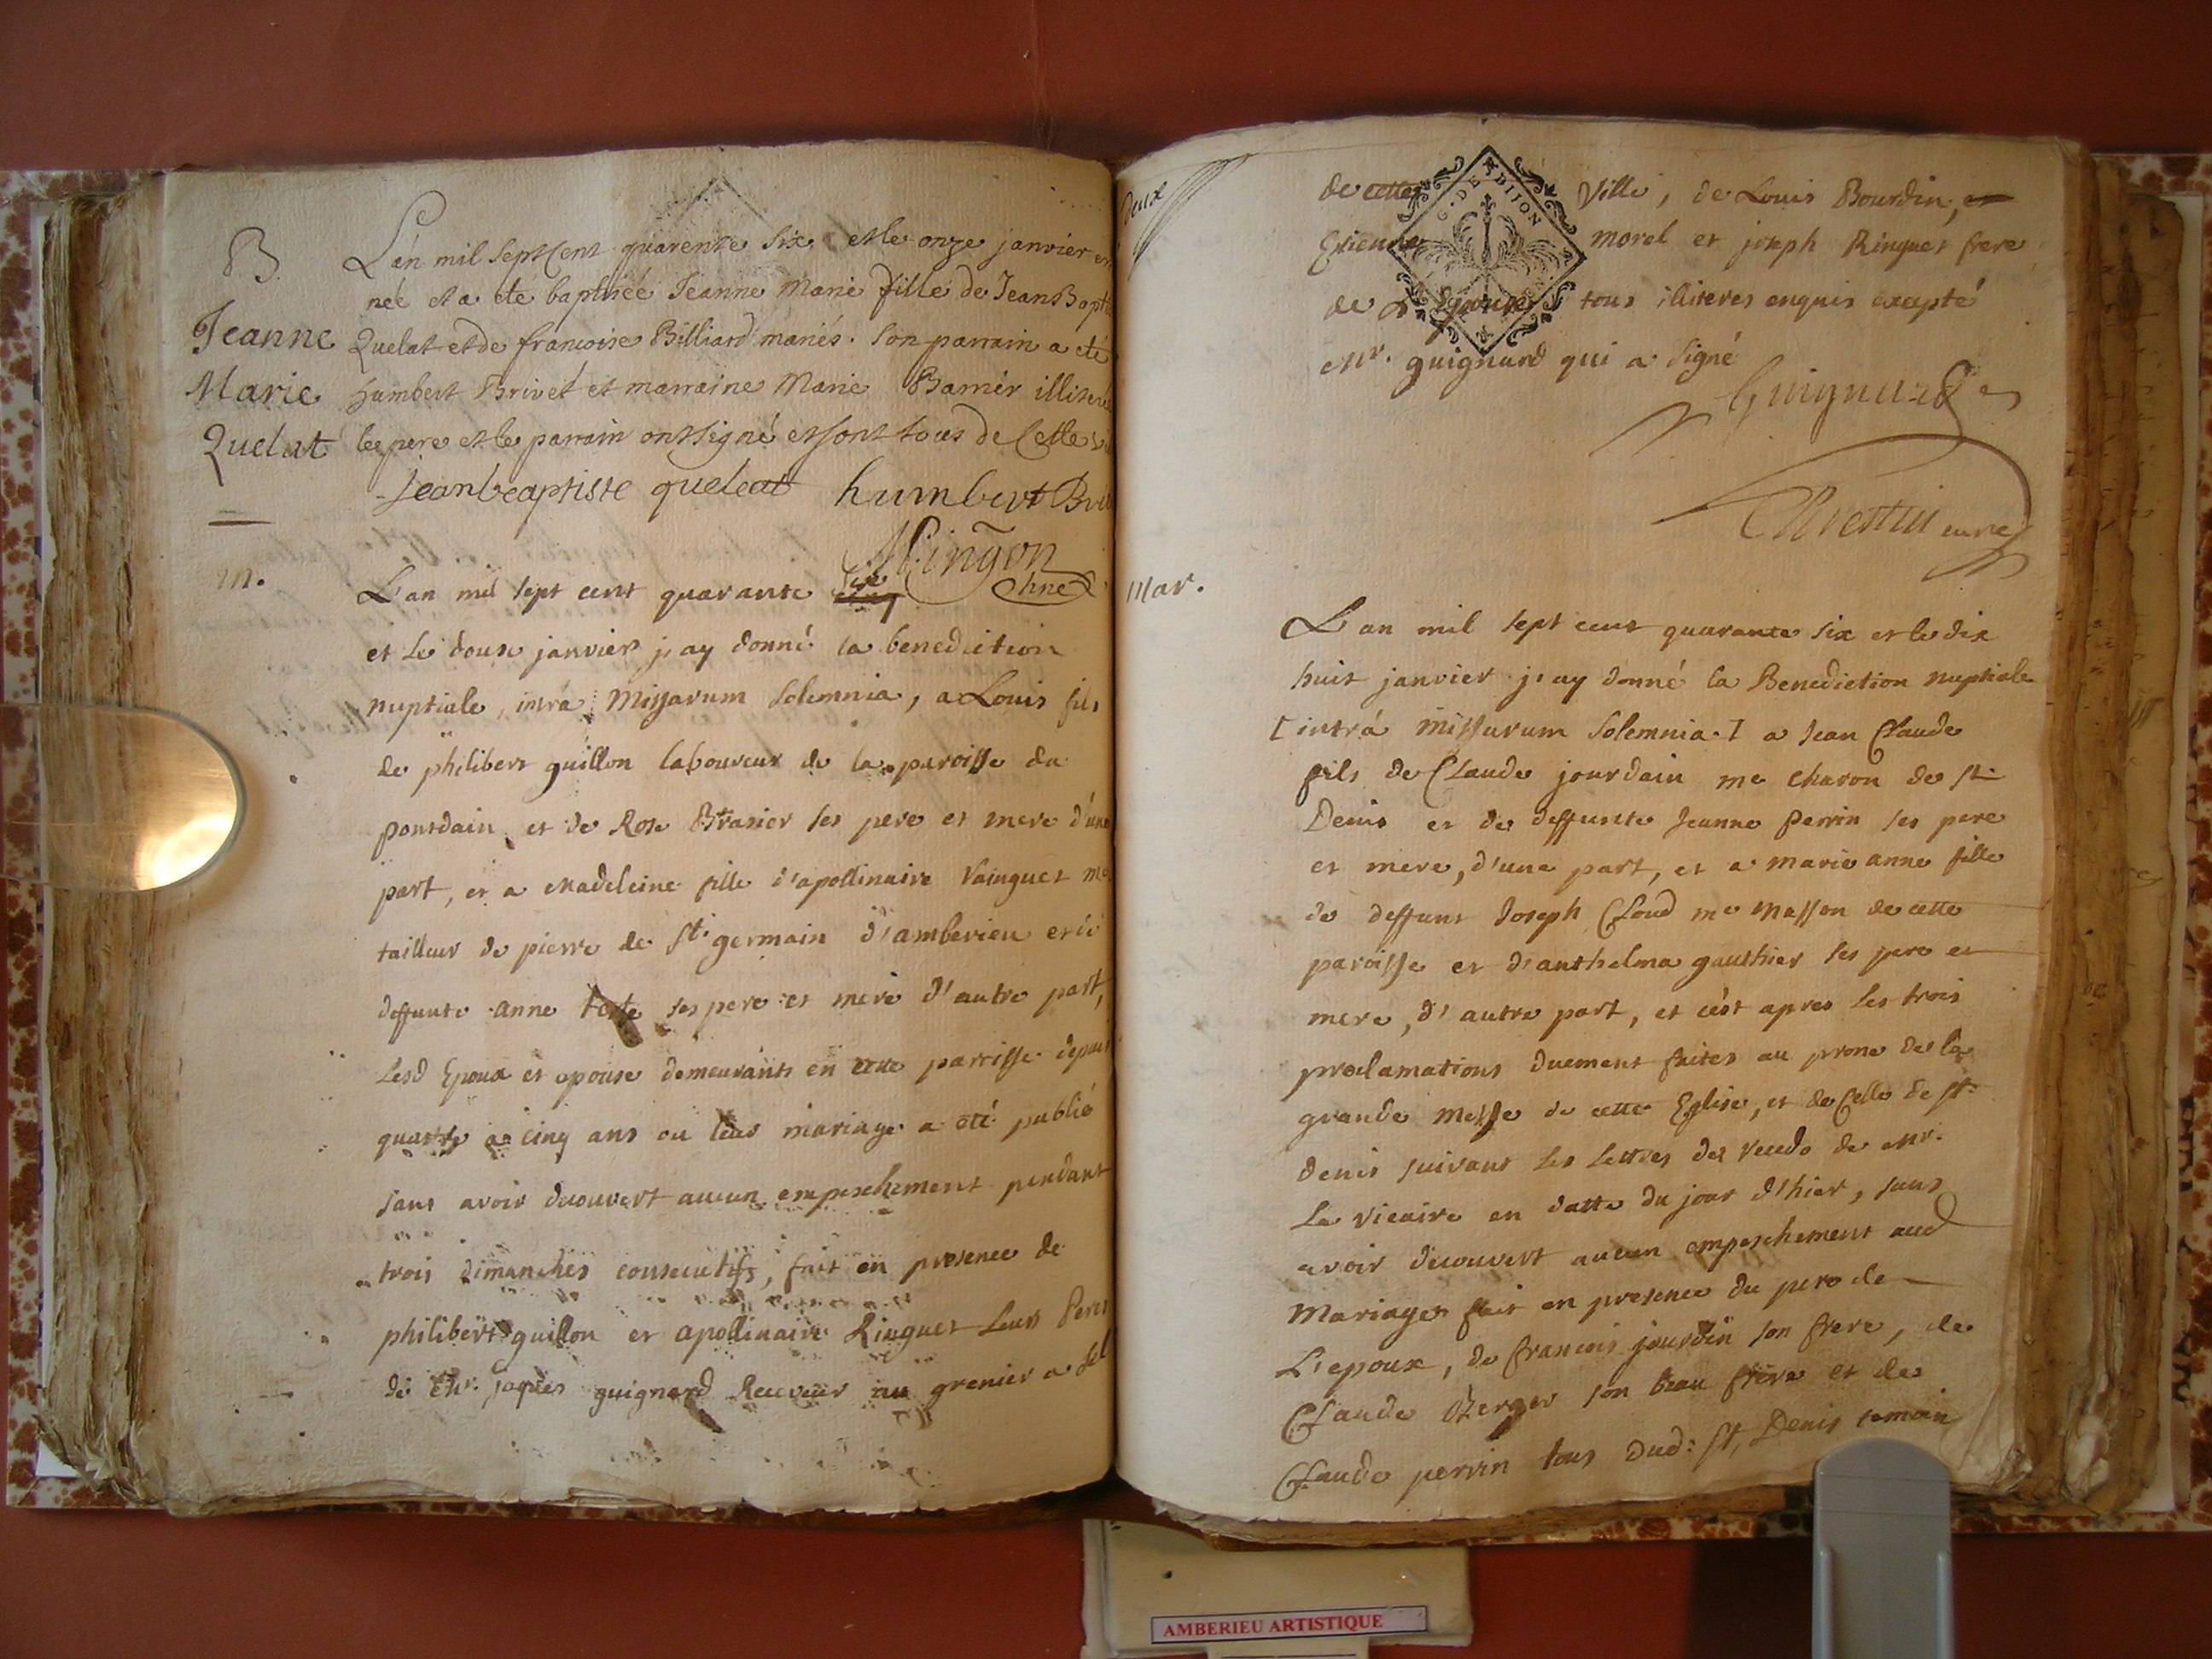 B.
Jeanne
Marie
Quelat
L'an mil sept Cent quarente six et le onze janvier
née et a ete baptisée Jeanne Marie fille de Jean Bapt
Quelat et de francoise Billiard mariés. son parrain a eté
humbert Brivet et marraine Marie Barnier illiteré
le pere et le parrain ont signé et sont tous de Cette
Jeanbeaptiste queleat humbert
Mingon
m.
L'an mil sept cent quarante six
et le douze janvier j'ay donné la benediction
nuptiale, intra Missarum solemnia, a Louis fils
de philibert guillon laboureur de la paroisse du
pontdain et de Rose Brasier ses pere et mere d'une
part, et a Madeleine fille d'apollinaire Rainguet me
tailleur de pierre de St. germain d'amberieu et de
deffunte anne teste ses pere et mere d'autre part,
Lesd Epoux et epouse demeurants en cette paroisse depuis
quatre a cinq ans ou leur mariage a eté publié
sans avoir decouvert aucun empeschement pendant
trois dimanches consecutifs, fait en presence de
philibert guillon et apollinaire Ringuet Leurs Peres
de Mr. jaques guignard Receveur au grenier a sel
deux
de cette Ville, de Louis Bourdin, et
Etienne morel et joseph Ringuet frere
de L'Epouse tous illiteres enquis excepté
Mr. guignard qui a signé
G. DE DIJON
Guignard
curé
Mar.
L'an mil sept cent quarante six et le dix
huit janvier j'ay donné la Benediction nuptiale
[intrá missarum solemnia.] a Jean Claude
fils de Claude jourdain me charon de st
Denis et de deffunte Jeanne perrin ses pere
et mere, d'une part, et a marie anne fille
de deffunt Joseph Cloud me masson de cette
paroisse et d'anthelma gauthier ses pere et
mere, d'autre part, et c'est apres les trois
proclamations duement faites au prone de la
grande Messe de cette Eglise, et de Celle de st
denis suivant les Lettres de recedo de Mr.
Le vicaire en datte du jour d'hier, sans
avoir decouvert aucun empeschement aud
Mariage, fait en presence du pere de
L'epoux, de francois jourdin son frere, de
Claude Berger son beau frere et de
Claude perrin tous dud: st, Denis temoin
AMBERIEU ARTISTIQUE